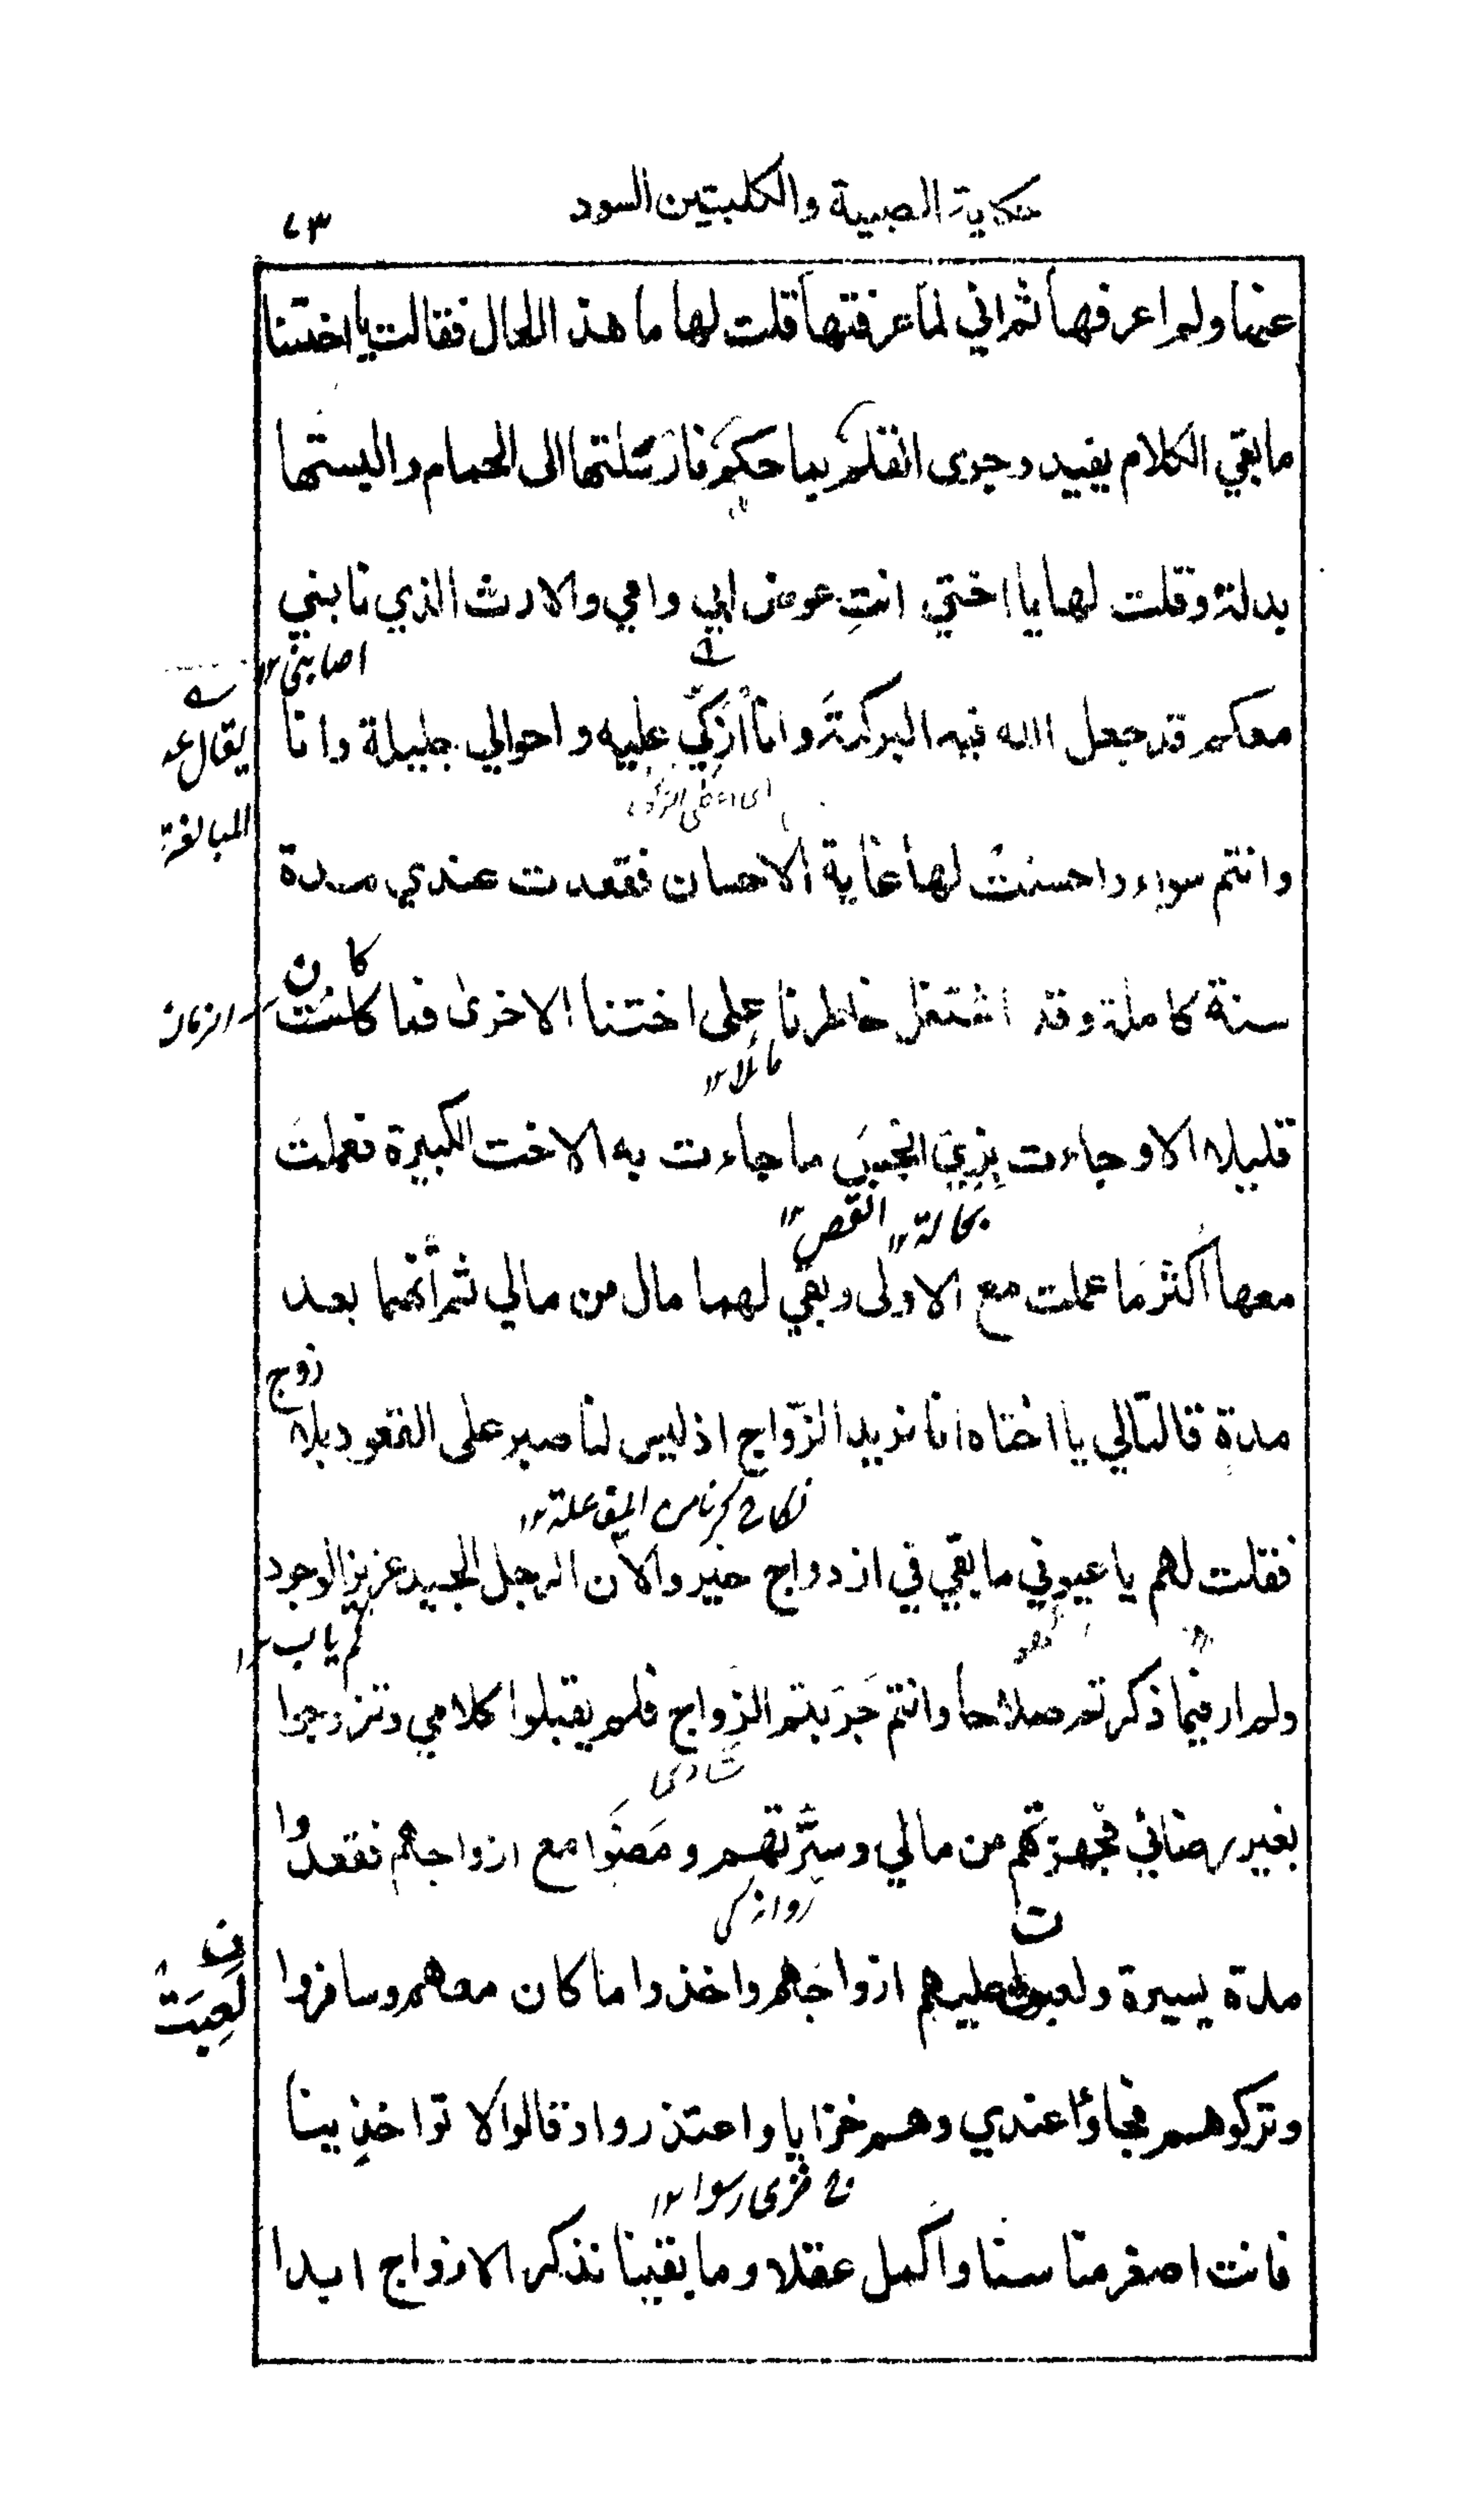 حكاية الصبية والكلبتين السود
٧٣
عنها ولم اعرفها ثم اني لما عرفتها قلت لها ما هذا الحال فقالت يا اختنا
ما بقي الكلام يفيد وجرى القلم بما حكم فارسلتها الى الحمام والبستها
بدلة وقلت لها يا اختي انتِ عوض ابي وامي والارث الذي نابني
اصابني
معكم قد جعل الله فيه البركة وانا ازكّي عليه واحوالي جليلة وانا
يقال
المبالغة
وانتم سواء واحسنت لها غاية الاحسان فقعدت عندي مدة
كان
سنة كاملة وقد اشتغل خاطرنا على اختنا الاخرى فما كانت
الزمان
قليلا الا وجاءت بزيّ انحس ما جاءت به الاخت الكبيرة فعملت
بحالة انقص
معها اكثر ما عملت مع الاولى وبقي لهما مال من مالي ثم انهما بعد
زوج
مدة قالتا لي يا اختاه انا نريد الزواج اذ ليس لنا صبر على القعود بلا
فقلت لهم يا عيوني ما بقي في ازدواج خير والان الرجل الجيد عزيز الوجود
كم ياب
ولم ار فيما ذكرتم صلاحا وانتم جَرَبتم الزواج فلم يقبلوا كلامي وتزوجوا
شادى
بغير رضائي فجهزتهم من مالي وسترتهم ومَضَوا مع ازواجهم فقعدوا
ت
مدة يسيرة ولعبوا عليهم ازواجهم واخذوا ما كان معهم وسافروا
ن
لَعِبَتْ
وتركوهم فجاوا عندي وهم خزايا واعتذروا وقالوا لا تواخذِينا
فانت اصغر منا سنا واكمل عقلا وما بقينا نذكر الازواج ابدا